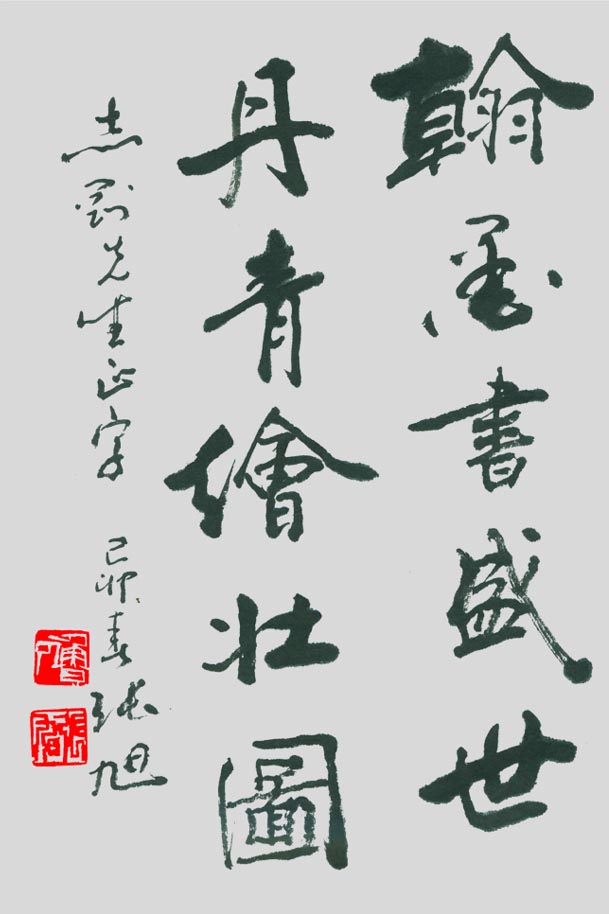 翰墨書盛世
丹青繪壯圖
志剛先生正字
己卯春 張旭